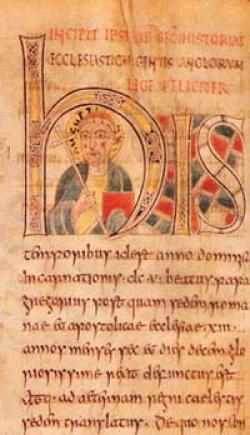 INCIPIT IPSIUS LIB SEC HISTORIAE
ECCLESIASTICAE GENTIS ANGLORUM
LEGE FELICITER
his
temporibus id est anno dominicae
incarnationis dcv beatus papa
gregorius postquam sedem roma
nae et apostolicae ecclesiae xiii
annos menses sex et dies decem glo
riosissime rexit defunctus est
atq ad aeternam regni caelestis
sedem translatus De quo nos